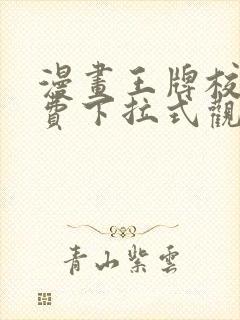 漫畫王牌校
費下拉式觀
青山紫雲